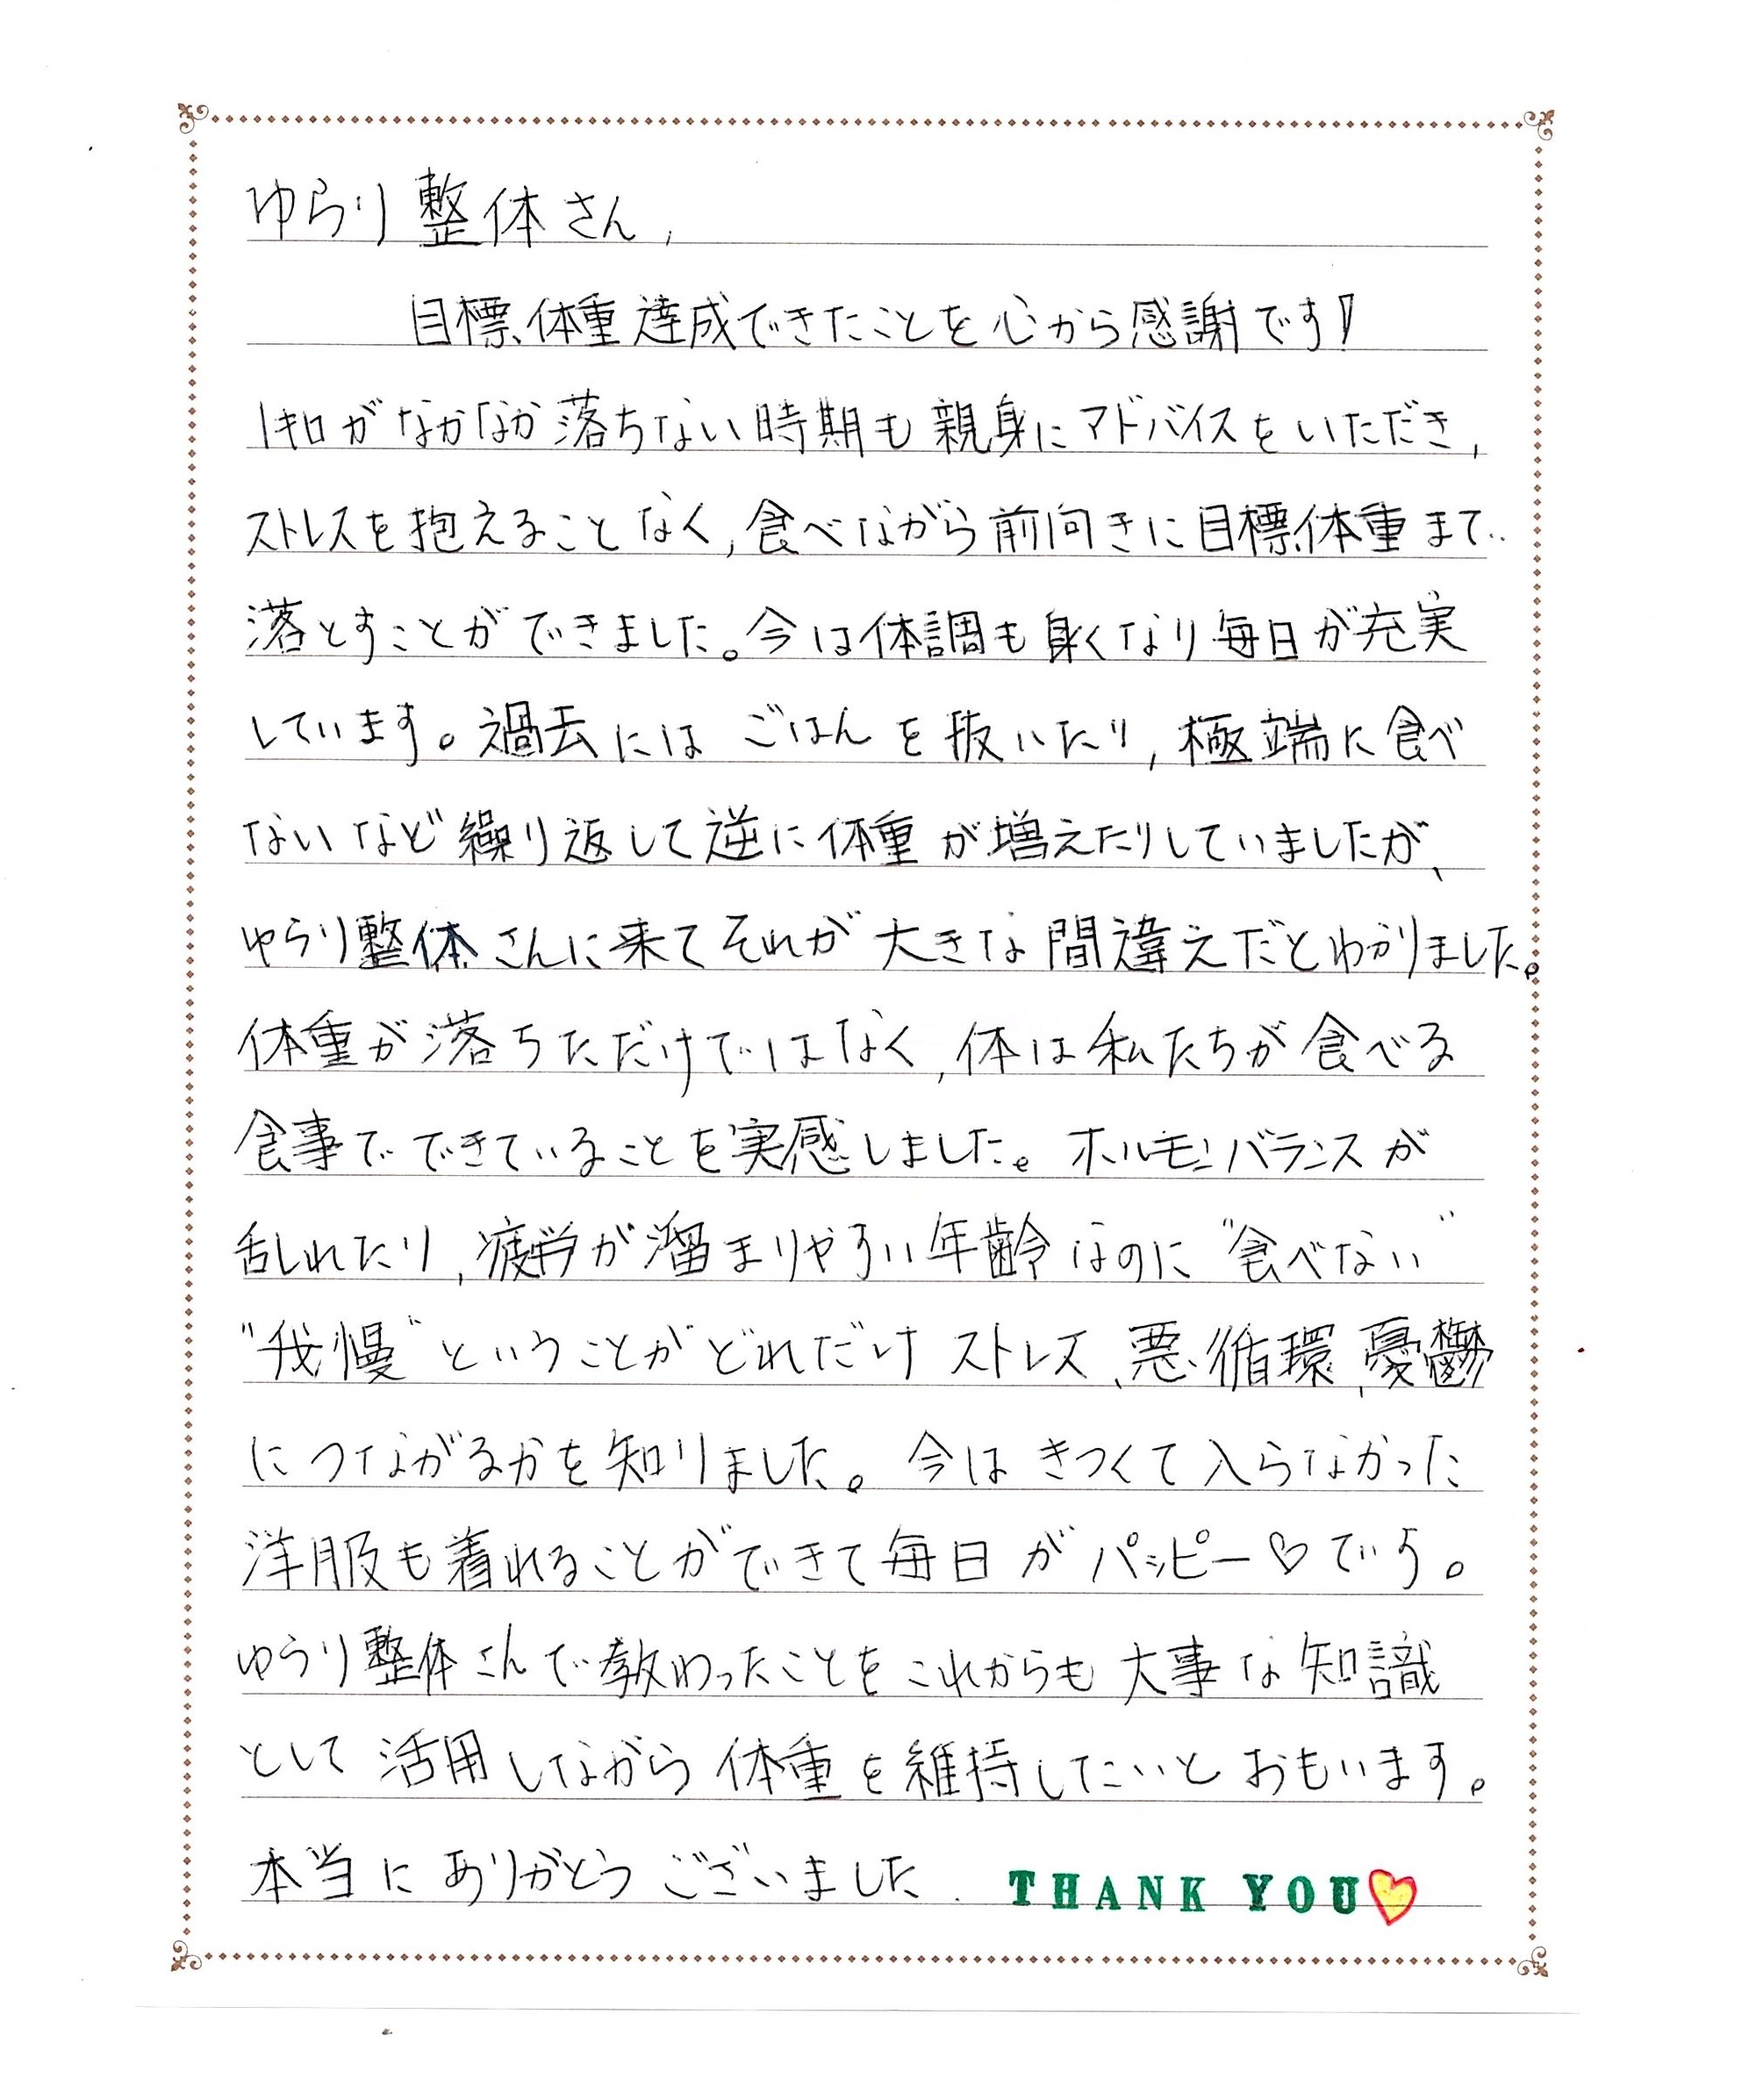 ゆらり整体さん,
目標体重達成できたことを心から感謝です!
1キロがなかなか落ちない時期も親身にアドバイスをいただき,
ストレスを抱えることなく,食べながら前向きに目標体重まで
落とすことができました。今は体調も良くなり毎日が充実
しています。過去にはごはんを抜いたり,極端に食べ
ないなど繰り返して逆に体重が増えたりしていましたが、
ゆらり整体さんに来てそれが大きな間違えだとわかりました。
体重が落ちただけではなく,体は私たちが食べる
食事でできていることを実感しました。ホルモンバランスが
乱れたり,疲労が溜まりやすい年齢なのに"食べない"
"我慢"ということがどれだけストレス、悪循環,憂鬱
につながるかを知りました。今はきつくて入らなかった
洋服も着れることができて毎日がハッピー♡です。
ゆらり整体さんで教わったことをこれからも大事な知識
として活用しながら体重を維持したいとおもいます。
本当にありがとうございました. THANK YOU